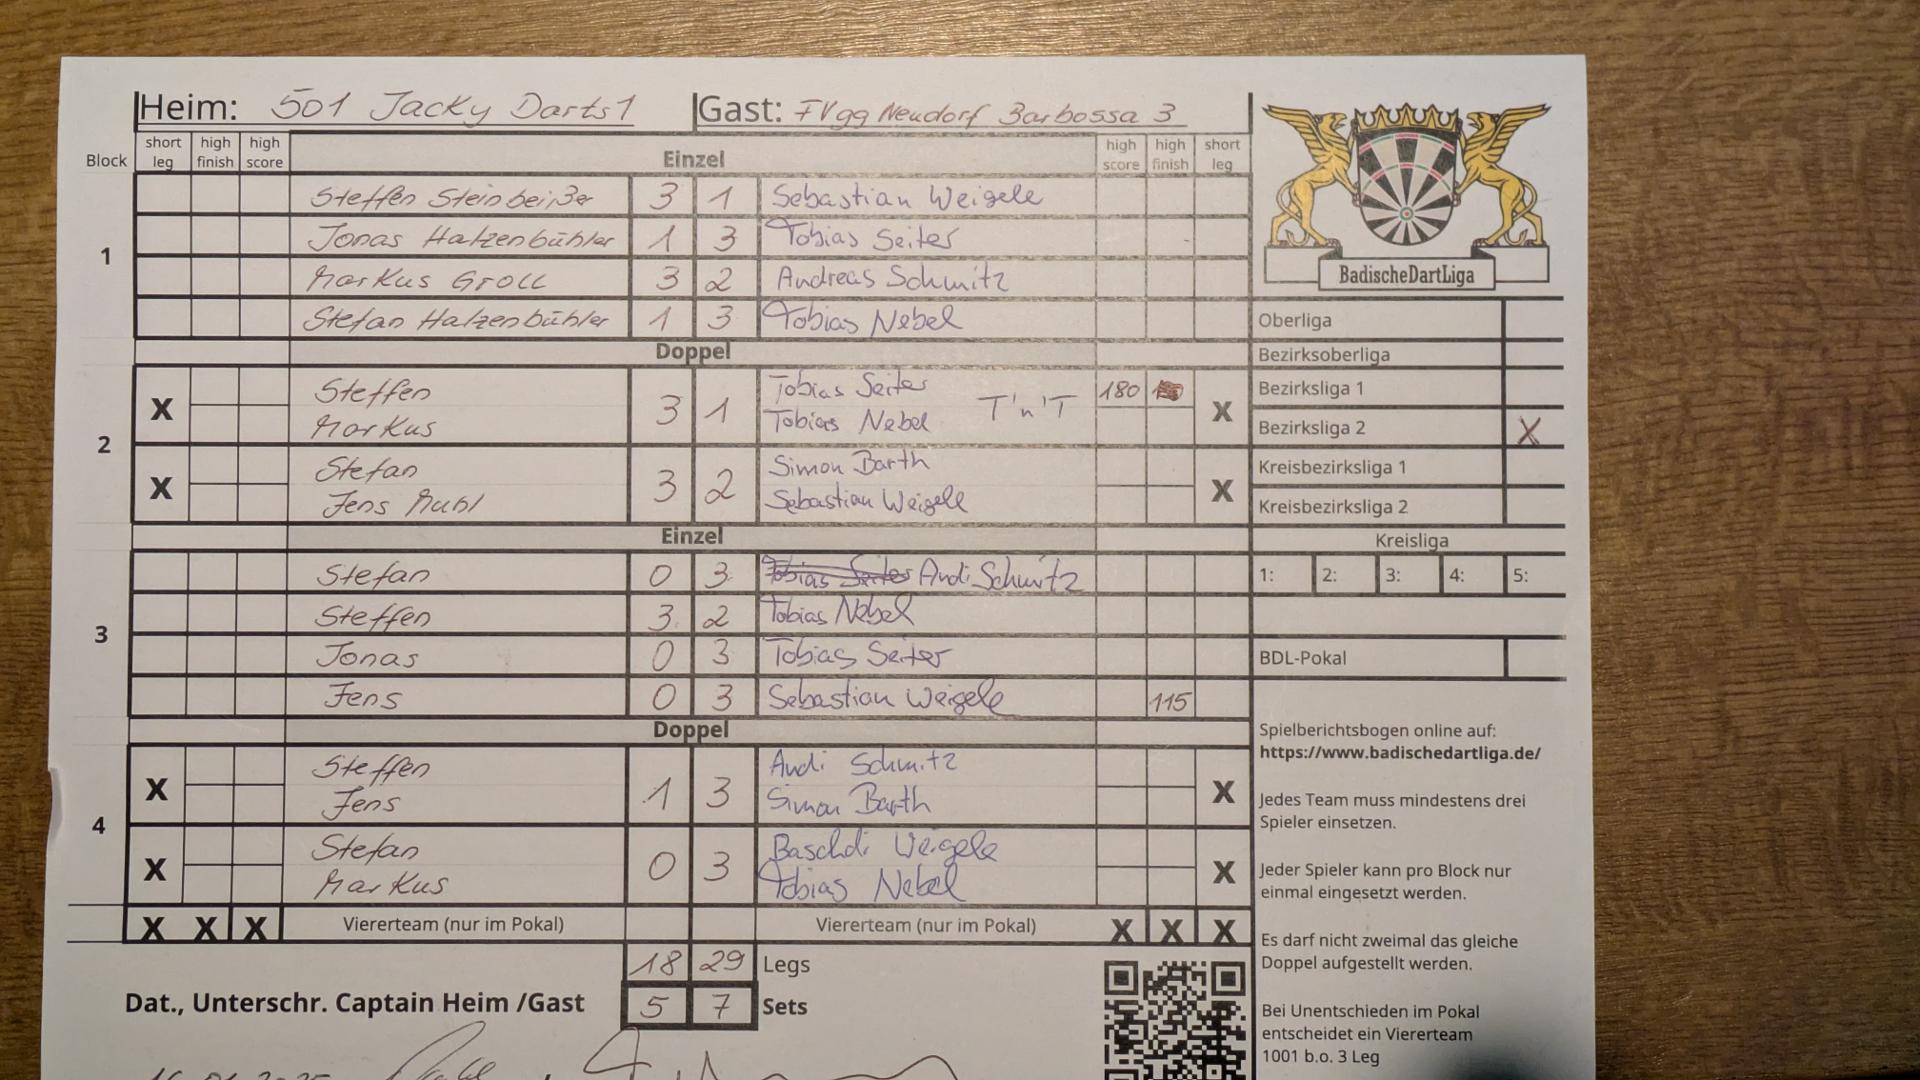 Heim: 501 Jacky Darts 1 Gast: FVgg Neudorf Barbossa 3
Block short leg high finish high score Einzel high score high finish short leg
1
Steffen Steinbeißer 3 1 Sebastian Weigele
Jonas Hatzenbühler 1 3 Tobias Seiter
Markus Groll 3 2 Andreas Schmitz
Stefan Hatzenbühler 1 3 Tobias Nebel
Doppel
2
X Steffen 3 1 Tobias Seiter 180 X
Markus Tobias Nebel T'n'T
X Stefan 3 2 Simon Barth X
Jens Sebastian Weigele
Einzel
3
Stefan 0 3 Tobias Seiter Andi Schmitz
Steffen 3 2 Tobias Nebel
Jonas 0 3 Tobias Seiter
Jens 0 3 Sebastian Weigele 115
Doppel
4
X Steffen 1 3 Andi Schmitz X
Jens Simon Barth
X Stefan 0 3 Baschdi Weigele X
Markus Tobias Nebel
X X X Viererteam (nur im Pokal) Viererteam (nur im Pokal) X X X
18 29 Legs
Dat., Unterschr. Captain Heim /Gast 5 7 Sets
BadischeDartLiga
Oberliga
Bezirksoberliga
Bezirksliga 1
Bezirksliga 2 X
Kreisbezirksliga 1
Kreisbezirksliga 2
Kreisliga
1: 2: 3: 4: 5:
BDL-Pokal
Spielberichtsbogen online auf:
https://www.badischedartliga.de/
Jedes Team muss mindestens drei
Spieler einsetzen.
Jeder Spieler kann pro Block nur
einmal eingesetzt werden.
Es darf nicht zweimal das gleiche
Doppel aufgestellt werden.
Bei Unentschieden im Pokal
entscheidet ein Viererteam
1001 b.o. 3 Leg